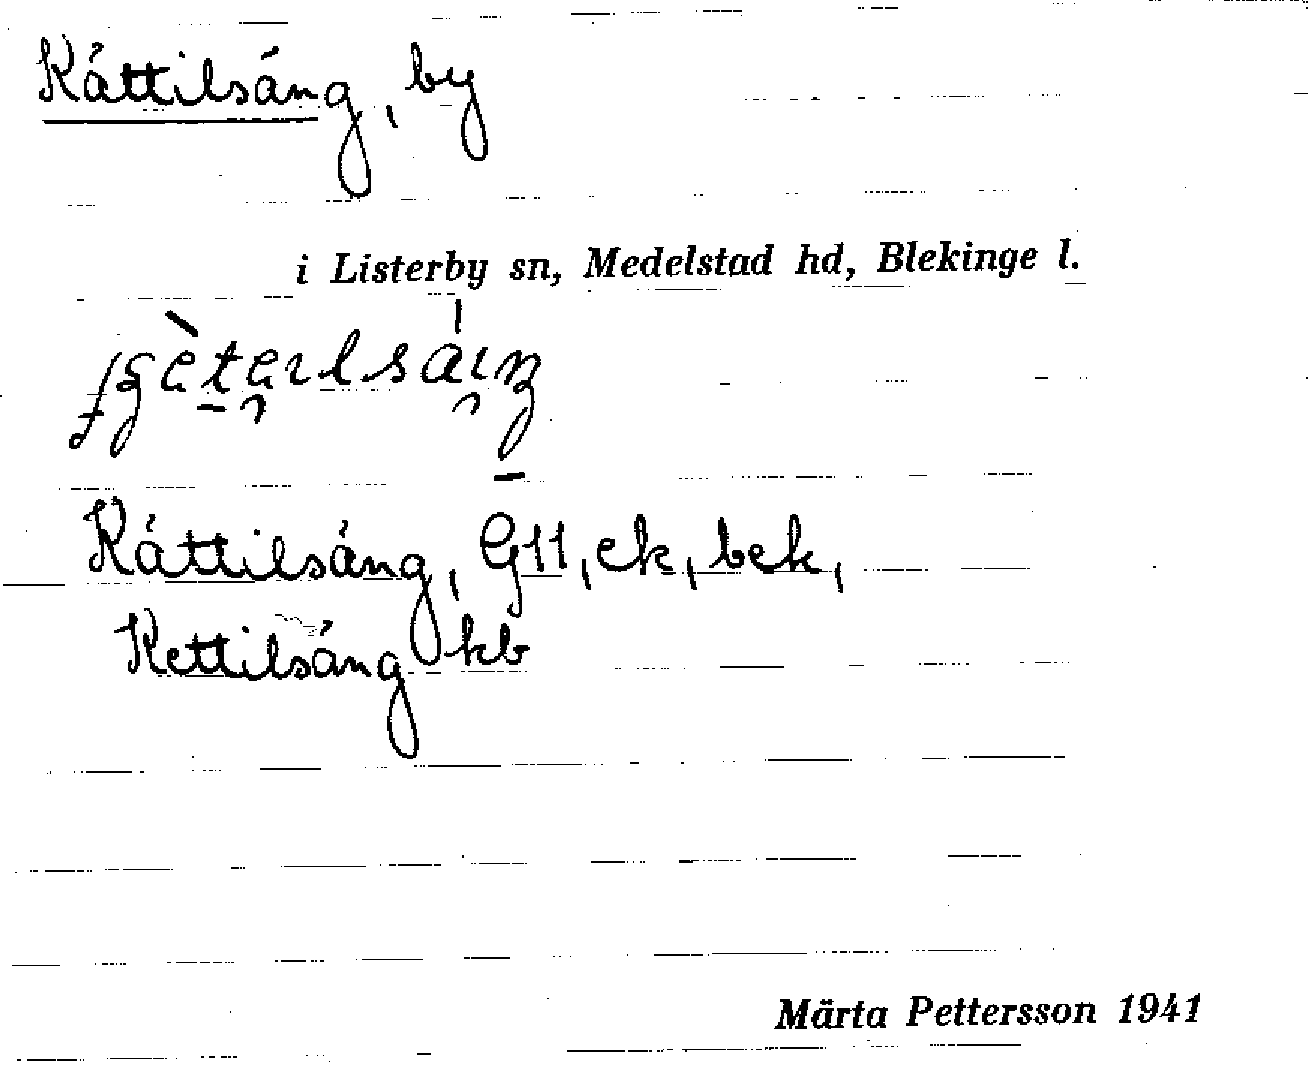 Kättilsäng, by
i Listerby sn, Medelstad hd, Blekinge l.
Kättilsäng, G11, ek, bek,
Kettilsäng kb
Märta Pettersson 1941